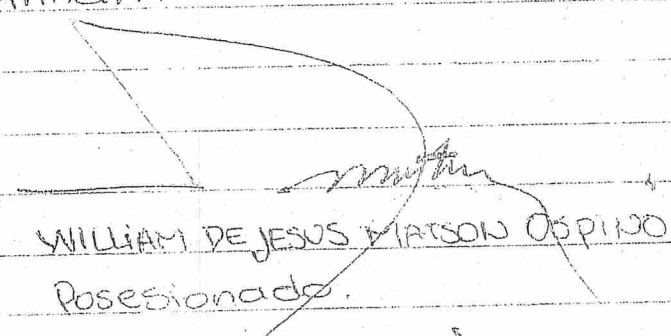 WILLIAM DE JESUS MATSON OSPINO
Posesionado.